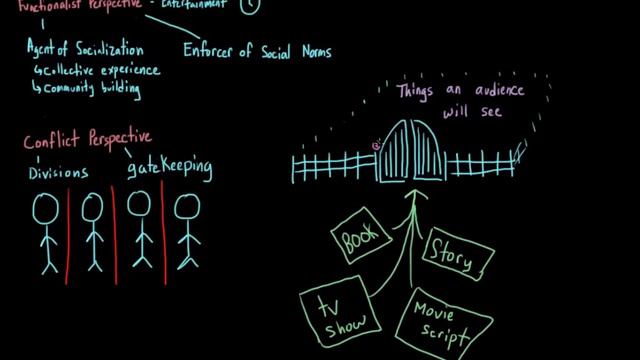 Functionalist Perspective - Entertainment
Agent of Socialization
↳ Collective experience
↳ Community building
Enforcer of Social Norms
Conflict Perspective
Divisions
gatekeeping
Things an audience
will see
Book
Story
tv
show
Movie
script